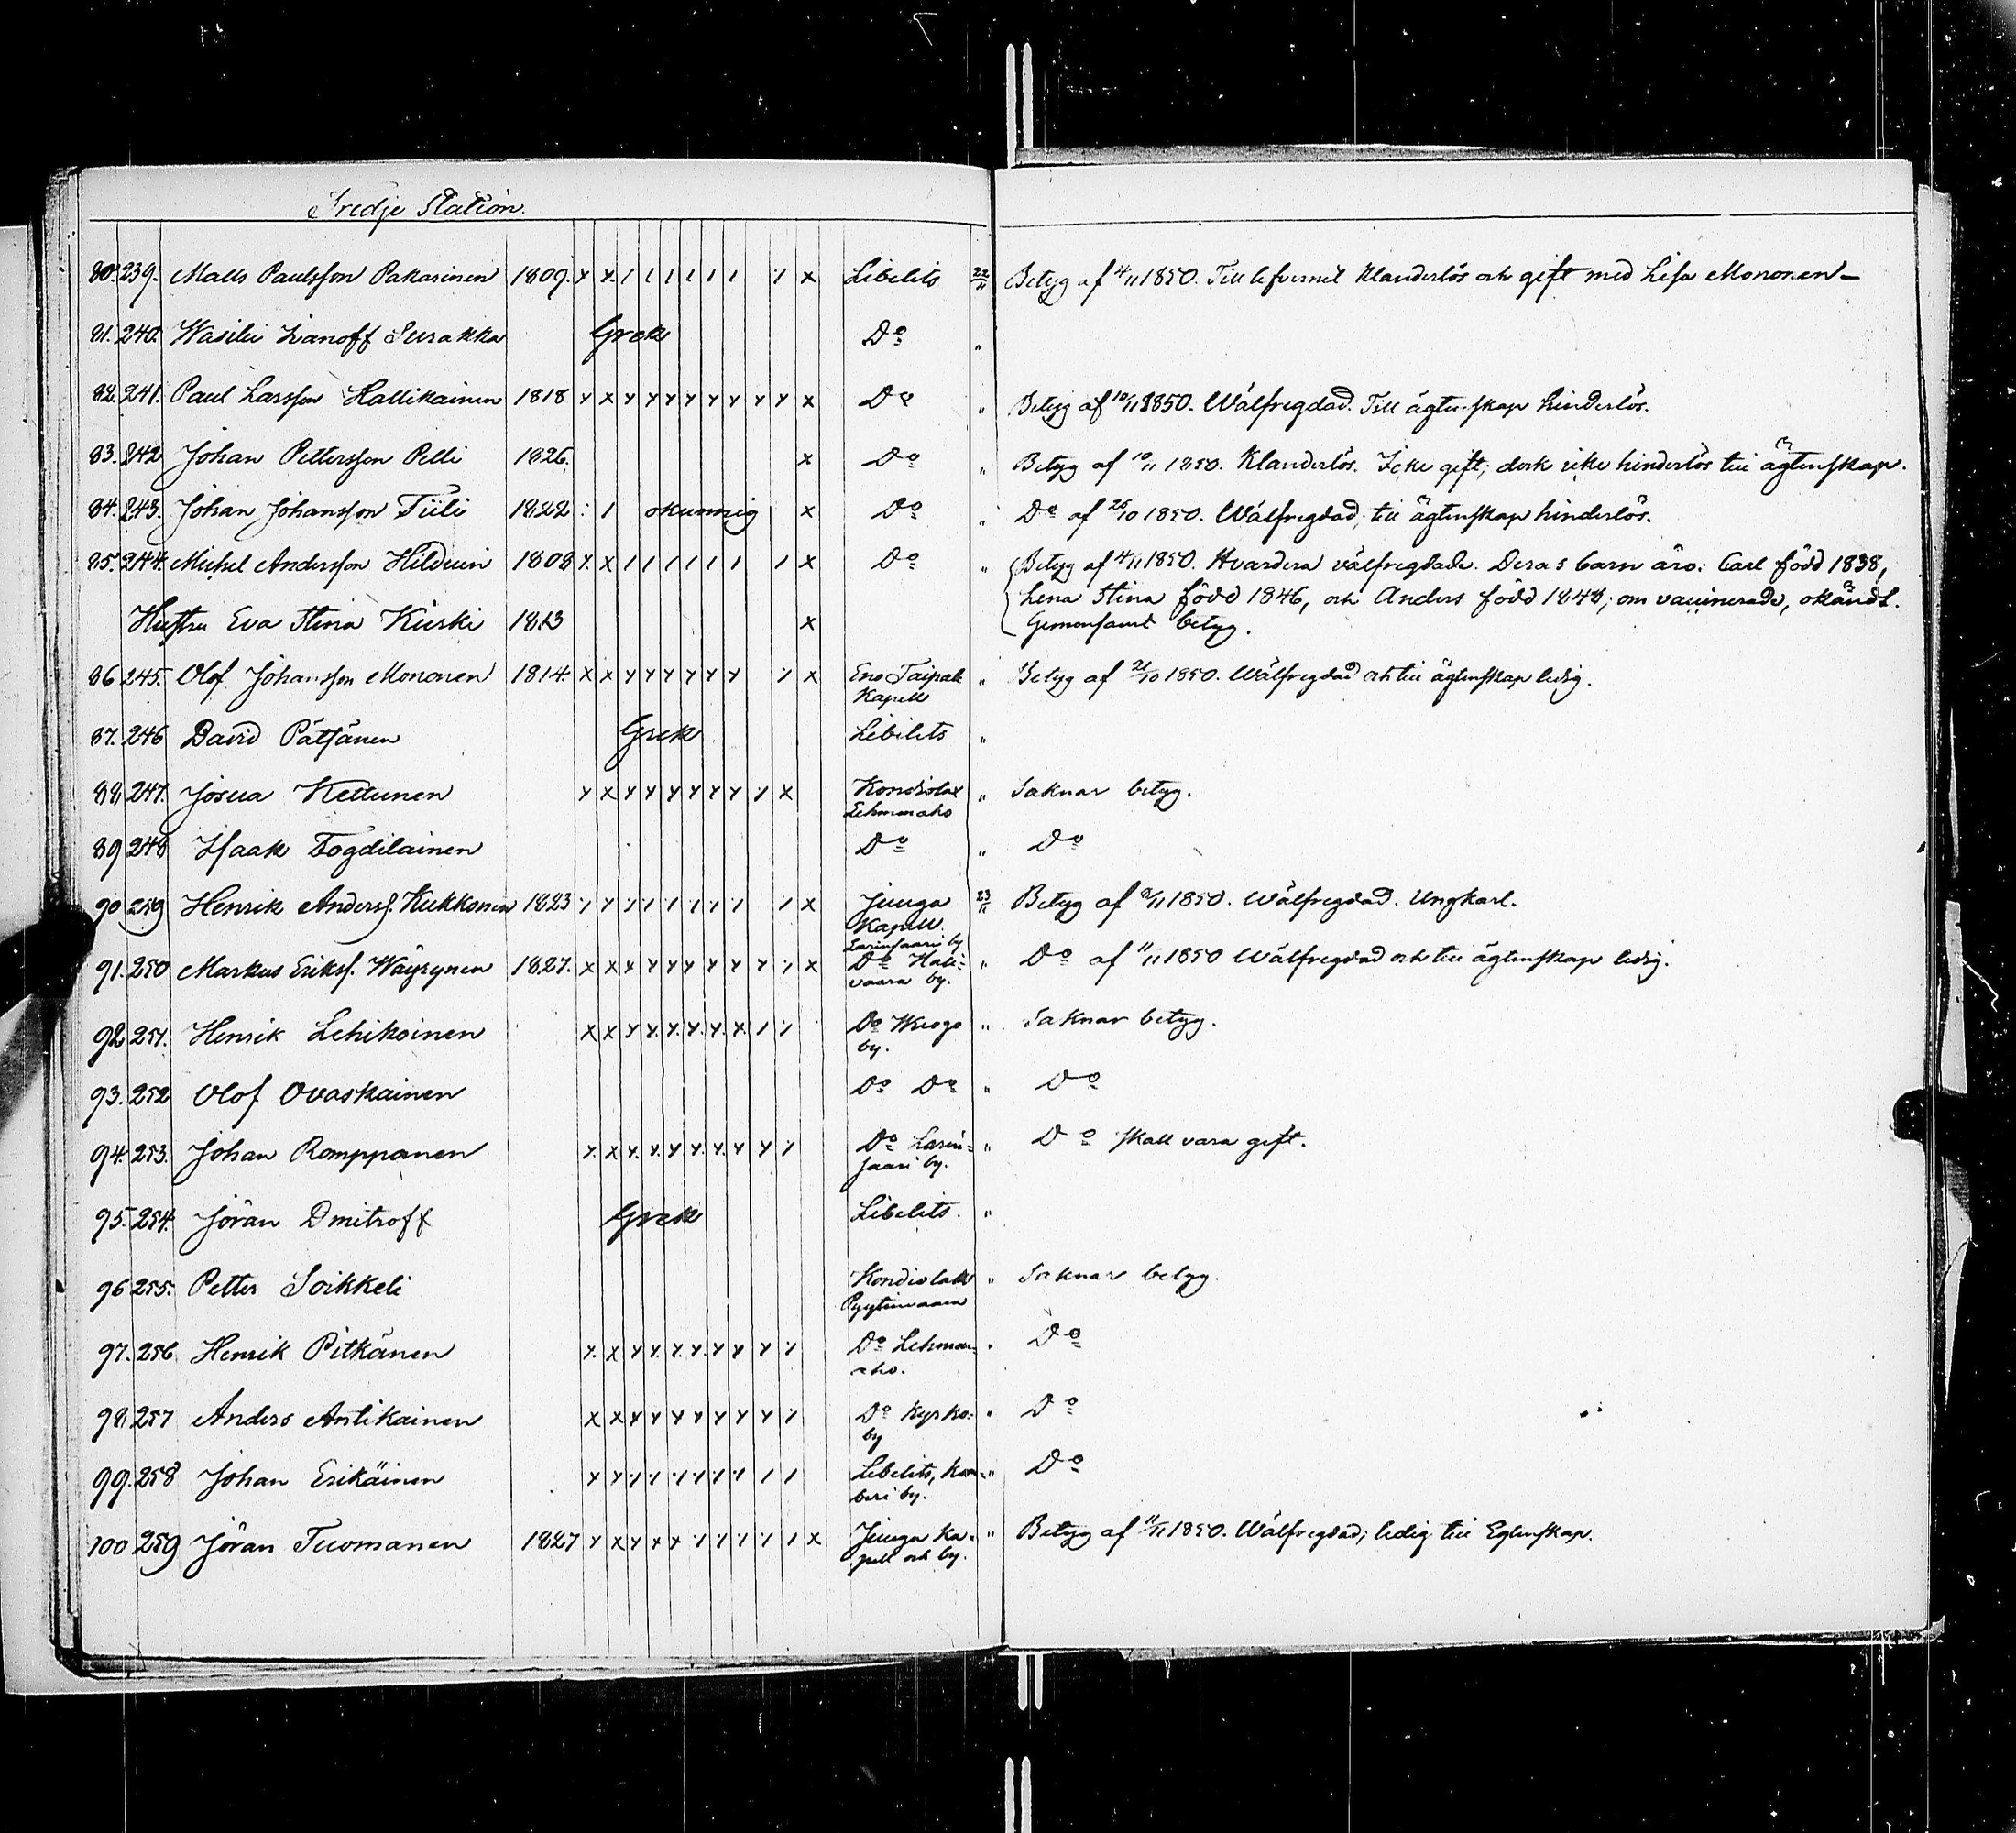 Tredje Station.
80. 239. Matts Paulsson Pakarinen 1809. x x. / / / / / / ⁒ x Libelits 22/11 Betyg af 4/11 1850. Till lefvernet klanderlös och gift med Lisa Mononen –
81. 240. Wasilei Ivanoff Surakka Grek Do "
82. 241. Paul Larsson Hallikainen 1818 x x x x x x x x x x x Do " Betyg af 10/11 1850. Wälfregdad. Till ägtenskap hinderlös.
83. 242 Johan Pettersson Pelli 1826. x Do " Betyg af 10/11 1850. Klanderlös. Icke gift; dock icke hinderlös till ägtenskap.
84. 243. Johan Johansson Tiili 1822 : / okunnig x Do " Do af 26/10 1850. Wälfregdad; till ägtenskap hinderlös.
85. 244. Michel Andersson Hilduin 1808 x. x / / / / / / / x Do " Betyg af 4/11 1850. Hvardera välfregdade. Deras barn äro: Carl född 1838,
Lena Stina född 1846, och Anders född 1848; om vaccinerade, okändt.
Hustru Eva Stina Kiiski 1813 x Gemensamt betyg.
86 245. Olof Johansson Mononen 1814. x x x x x x x x ⁒ x Eno Taipale " Betyg af 21/10 1850. Wälfregdad och till ägtenskap ledig.
Kapell
87. 246 David Pätsänen Grek Libelits "
88. 247. Josua Kettunen x x x x x x x x ⁒ x Kondiolax " Saknar betyg.
Lehmonaho
89 248 Isaak Togdilainen Do " Do
90 259 Henrik Anderss. Kukkonen 1823 ⁒ x ⁒ ⁒ ⁒ ⁒ ⁒ ⁒ ⁒ x Juuga 23/11 Betyg af 9/11 1850. Wälfregdad. Ungkarl.
Kapell.
Larinsaari by
91. 250 Markus Erikss. Wäyrynen 1827. x x x x x x x x x ⁒ x Do Hali= " Do af 11/11 1850 Wälfregdad och till ägtenskap ledig.
vaara by.
92 251. Henrik Lehikoinen x x x x. x. x. x. x. / ⁒ Do Wuogo " Saknar betyg.
by.
93. 252 Olof Ovaskainen Do Do " Do
94. 253. Johan Romppanen x. x x. x. x. x. x. x x ⁒ Do Larin= " Do skall vara gift.
saari by.
95. 254. Jöran Dmitroff Grek Libelits. "
96 255. Petter Soikkeli Kondiolaks " Saknar betyg.
Pyytivaara
97. 256 Henrik Pitkänen x. x x x. x. x. x x x ⁒ Do Lehmon= " Do
aho.
98. 257 Anders Antikainen x x x x x x x x x ⁒ Do Kyrko= " Do
by
99. 258 Johan Erikäinen x x ⁒ ⁒ ⁒ ⁒ ⁒ ⁒ / / Libelits, " Do
by.
100 259 Jöran Tuomanen 1827 x x x x x ⁒ ⁒ ⁒ ⁒ / x Juuga ka= " Betyg af 11/11 1850. Wälfregdad; ledig till Egtenskap.
pell och by.